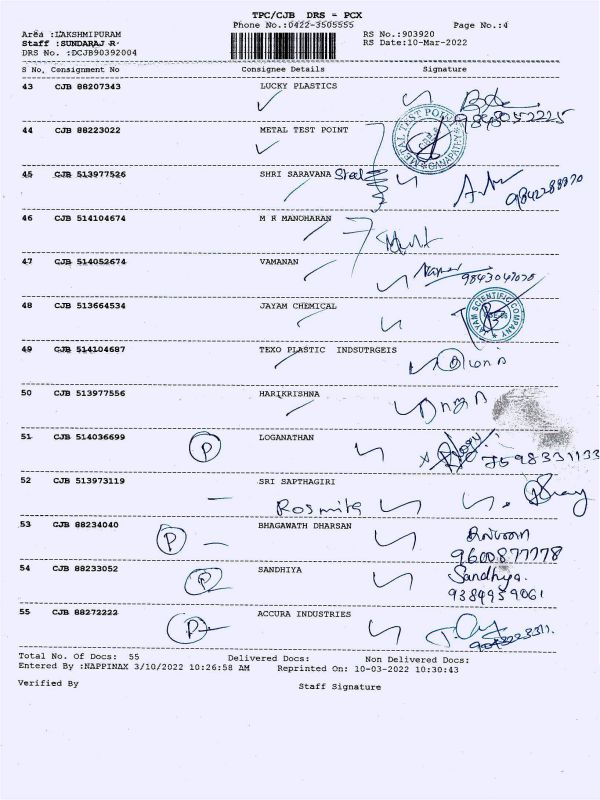 TPC/CJB DRS - PCX
Phone No.:0422-3505555 Page No.:4
Area :LAKSHMIPURAM RS No.:903920
Staff :SUNDARAJ R RS Date:10-Mar-2022
DRS No. :DCJB90392004
S No. Consignment No Consignee Details Signature
43 CJB 88207343 LUCKY PLASTICS
9848052225
44 CJB 88223022 METAL TEST POINT
METAL TEST POINT GANAPATHY
45 CJB 513977526 SHRI SARAVANA Steel
9842288870
46 CJB 514104674 M R MANOHARAN
47 CJB 514052674 VAMANAN
9843047070
48 CJB 513664534 JAYAM CHEMICAL
JAYAM SCIENTIFIC COMPANY
49 CJB 514104687 TEXO PLASTIC INDSUTRGEIS
50 CJB 513977556 HARIKRISHNA
51 CJB 514036699 P LOGANATHAN
7598331133
52 CJB 513973119 SRI SAPTHAGIRI
Rosmita
53 CJB 88234040 P BHAGAWATH DHARSAN
9600877778
54 CJB 88233052 P SANDHIYA Sandhiya.
9384959061
55 CJB 88272222 P ACCURA INDUSTRIES
Total No. of Docs: 55 Delivered Docs: Non Delivered Docs:
Entered By :NAPPINAX 3/10/2022 10:26:58 AM Reprinted On: 10-03-2022 10:30:43
Verified By Staff Signature